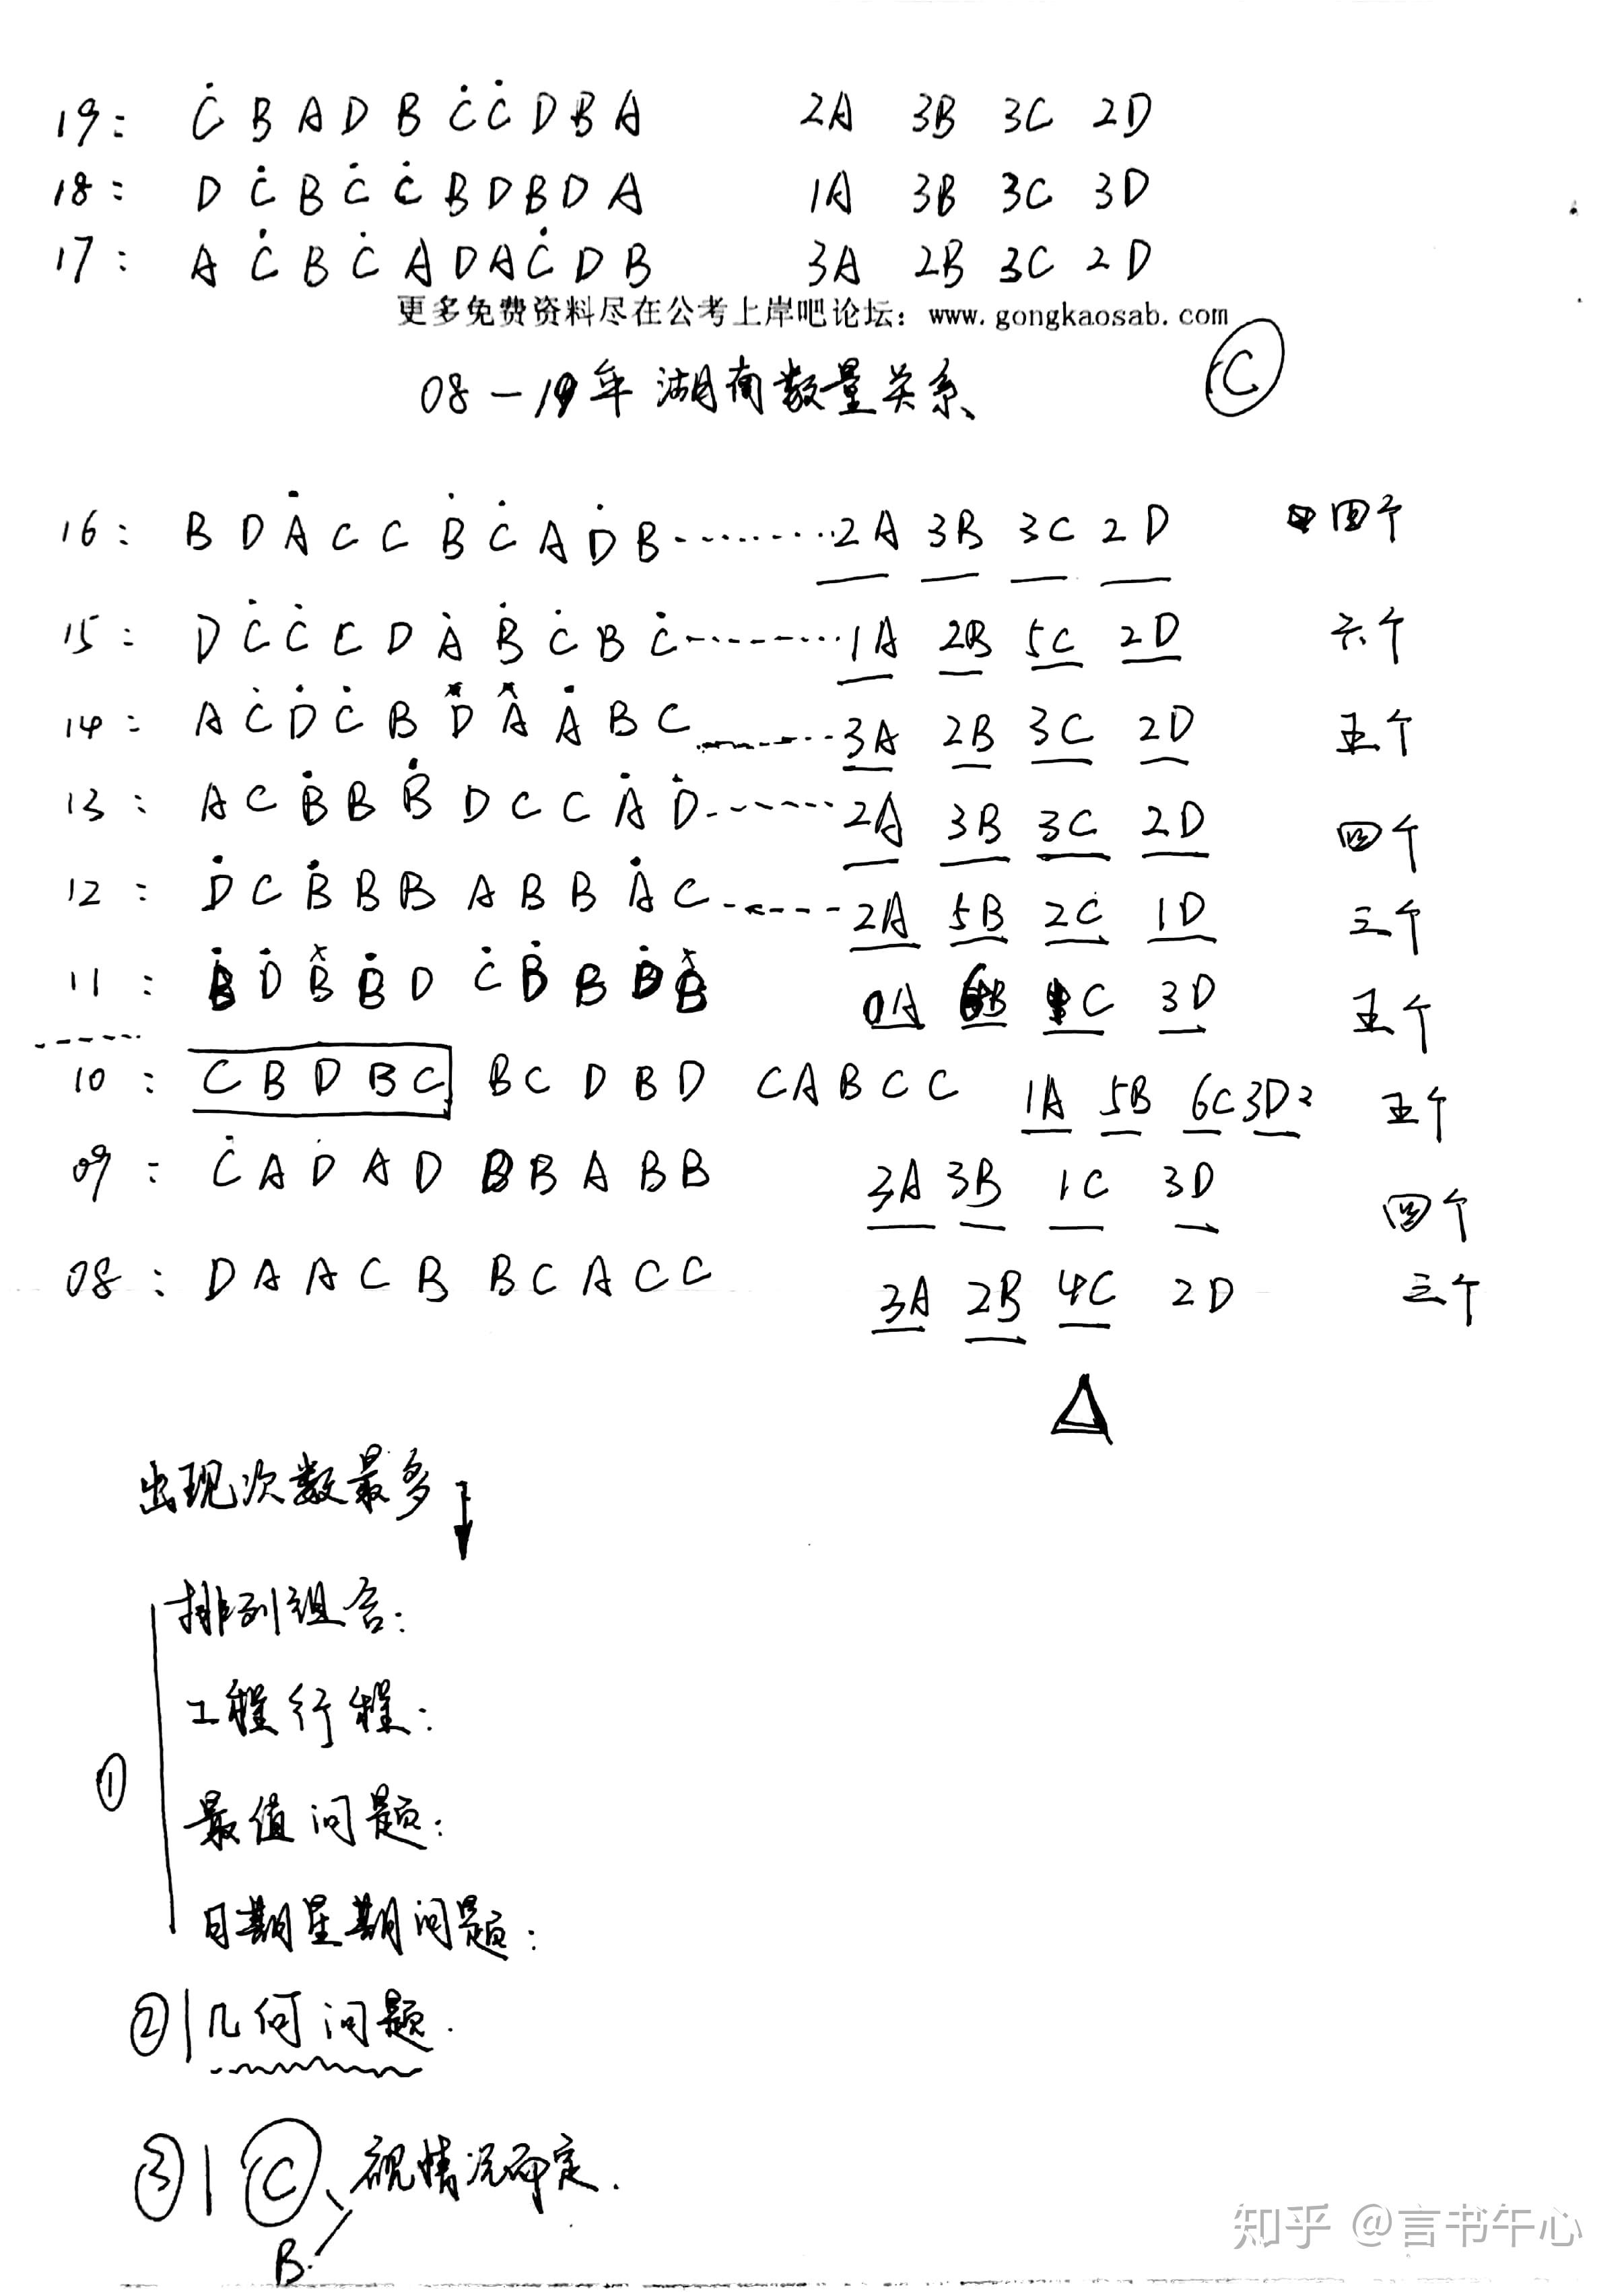 19: C B A D B C C D B A 2A 3B 3C 2D
18: D C B C C B D B D A 1A 3B 3C 3D
17: A C B C A D A C D B 3A 2B 3C 2D
更多免费资料尽在公考上岸吧论坛：www.gongkaosab.com
08-19年湖南数量关系 C
16: B D A C C B C A D B ········ 2A 3B 3C 2D 四个
15: D C C C D A B C B C ------- 1A 2B 5C 2D 六个
14: A C D C B D A A B C ------- 3A 2B 3C 2D 五个
13: A C B B B D C C A D ------- 2A 3B 3C 2D 四个
12: D C B B B A B B A C ------- 2A 5B 2C 1D 三个
11: B D B B D C B B D B 0A 6B 1C 3D 五个
10: C B D B C B C D B D C A B C C 1A 5B 6C 3D 五个
09: C A D A D B B A B B 3A 3B 1C 3D 四个
08: D A A C B B C A C C 3A 2B 4C 2D 三个
△
出现次数最多
排列组合:
工程行程:
① 最值问题:
日期星期问题:
② 几何问题.
③ C、视情况而定.
B.
知乎 @言书午心